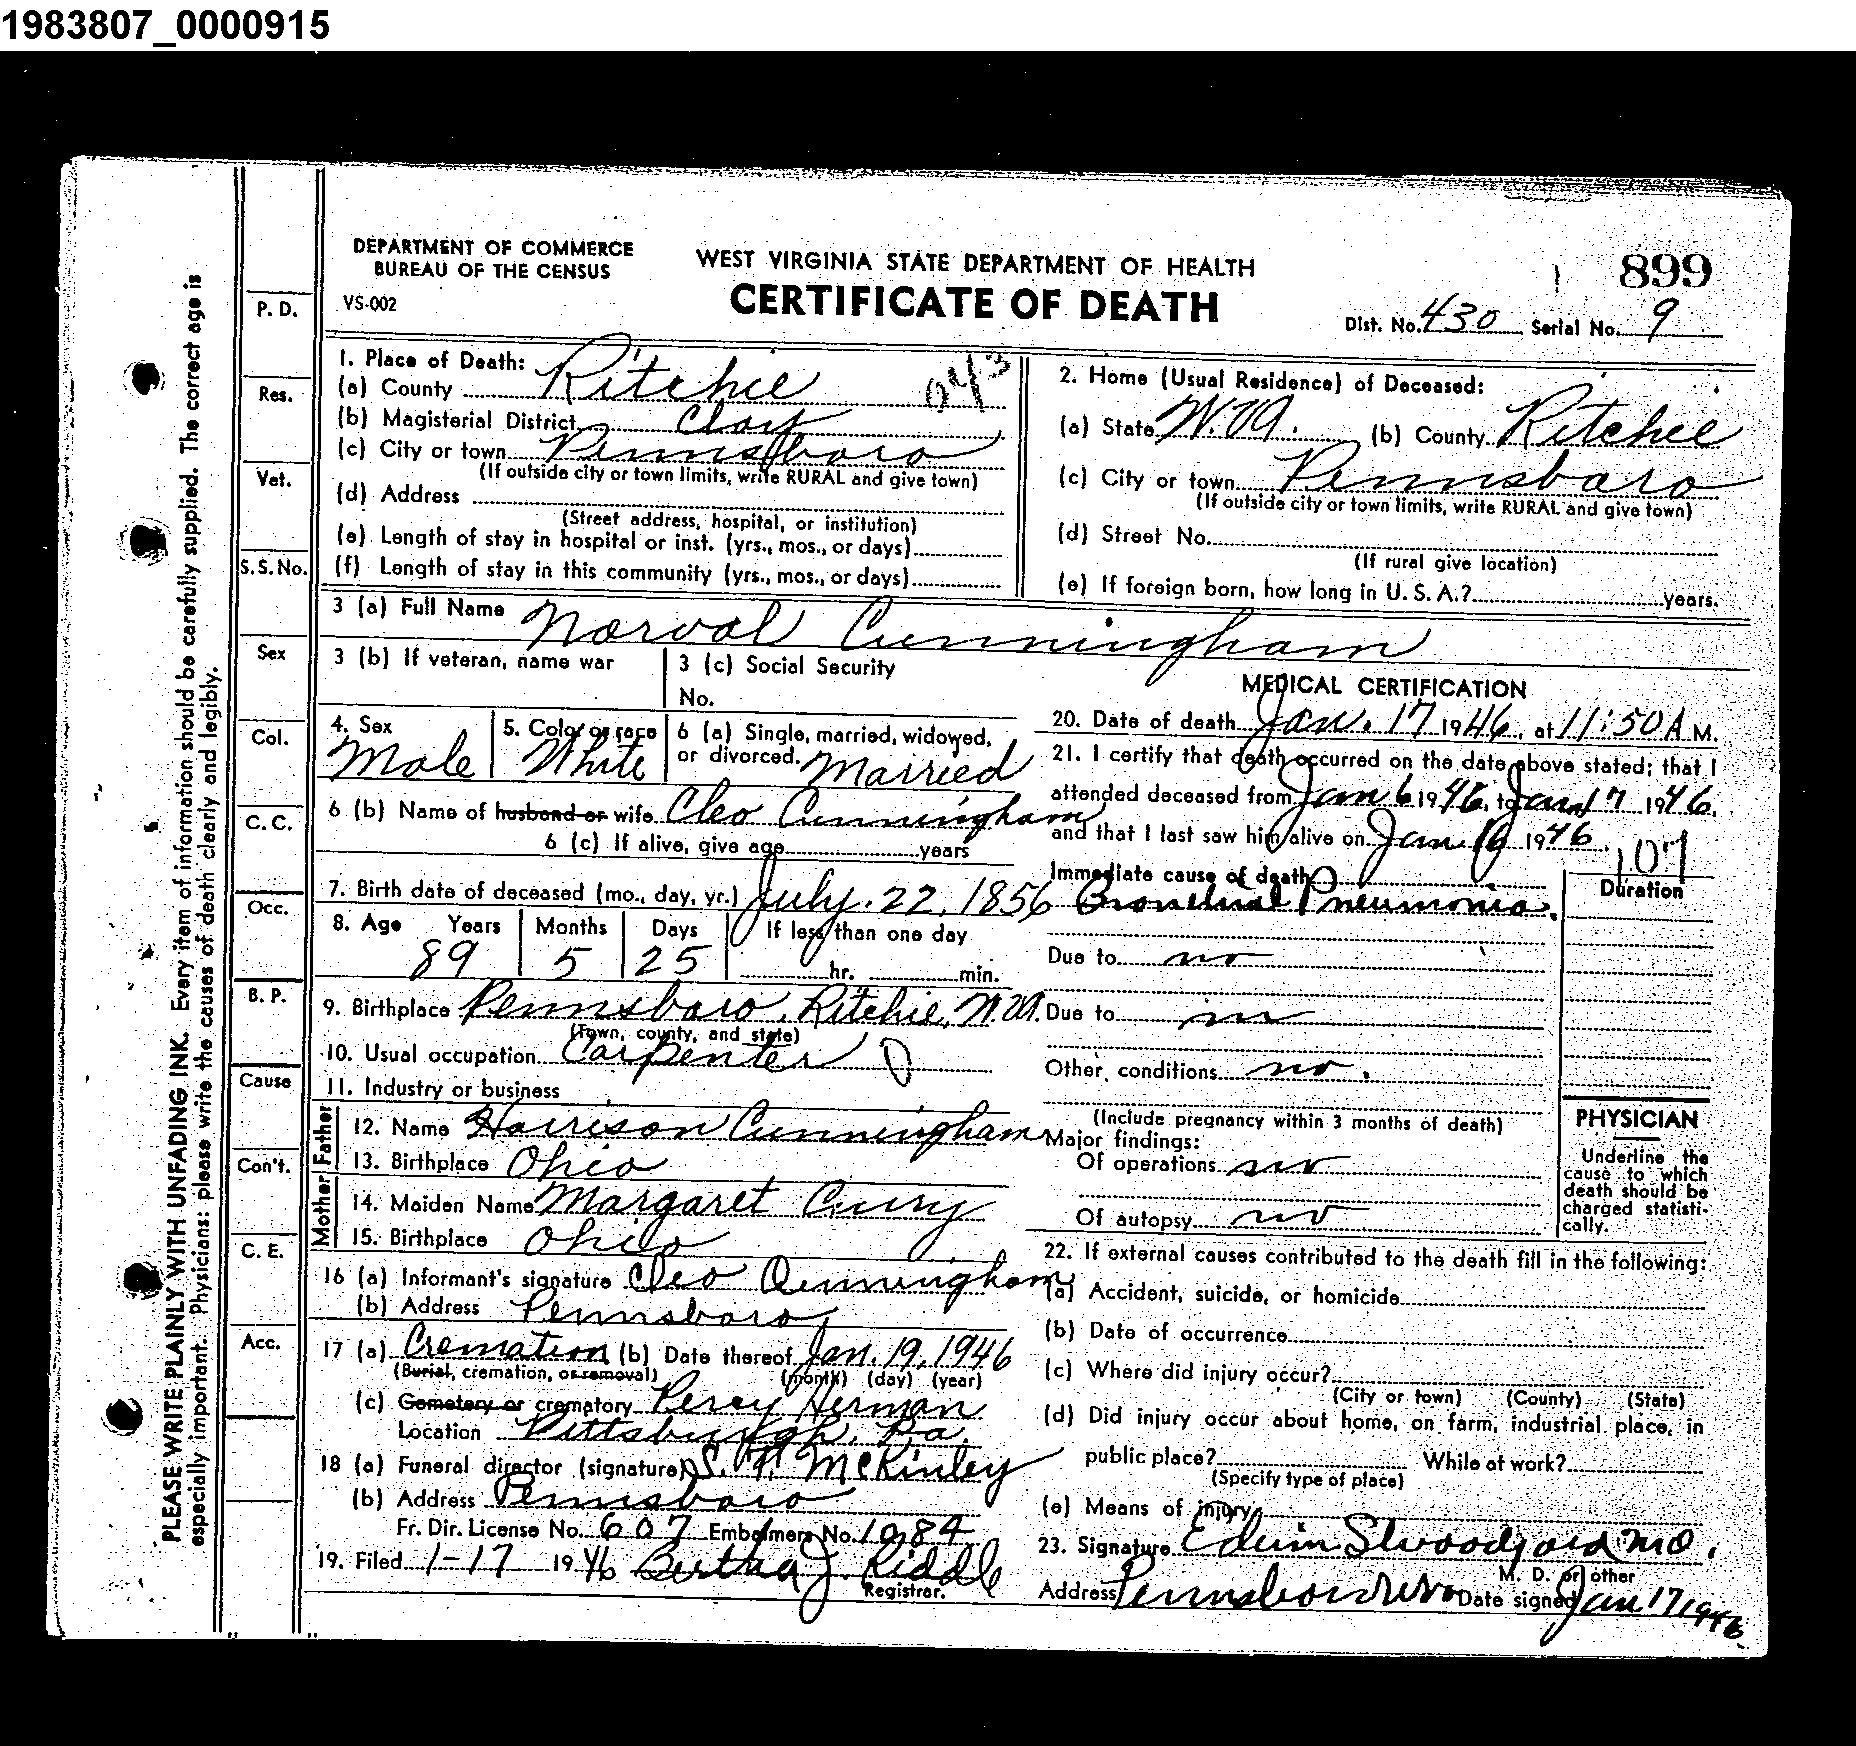 1983807_0000915
DEPARTMENT OF COMMERCE
BUREAU OF THE CENSUS
VS-002
WEST VIRGINIA STATE DEPARTMENT OF HEALTH
CERTIFICATE OF DEATH
899
Dist. No. 430 Serial No. 9
PLEASE WRITE PLAINLY WITH UNFADING INK. Every item of information should be carefully supplied. The correct age is
especially important. Physicians: please write the causes of death clearly and legibly.
P. D.
Res.
Vet.
S. S. No.
Sex
Col.
C. C.
Occ.
B. P.
Cause
Con't.
C. E.
Acc.
1. Place of Death:
(a) County Ritchie 043
(b) Magisterial District Clay
(c) City or town Pennsboro
(If outside city or town limits, write RURAL and give town)
(d) Address
(Street address, hospital, or institution)
(e) Length of stay in hospital or inst. (yrs., mos., or days)
(f) Length of stay in this community (yrs., mos., or days)
2. Home (Usual Residence) of Deceased:
(a) State W. VA. (b) County Ritchie
(c) City or town Pennsboro
(If outside city or town limits, write RURAL and give town)
(d) Street No.
(If rural give location)
(e) If foreign born, how long in U. S. A.? years.
3 (a) Full Name Norval Cunningham
3 (b) If veteran, name war
3 (c) Social Security
No.
4. Sex Male
5. Color or race White
6 (a) Single, married, widowed,
or divorced. Married
6 (b) Name of husband or wife Cleo Cunningham
6 (c) If alive, give age years
7. Birth date of deceased (mo., day, yr.) July. 22, 1856
8. Age Years Months Days If less than one day
89 5 25 hr. min.
9. Birthplace Pennsboro, Ritchie, W. VA.
(Town, county, and state)
10. Usual occupation Carpenter
11. Industry or business
Father
12. Name Harrison Cunningham
13. Birthplace Ohio
Mother
14. Maiden Name Margaret Curry
15. Birthplace Ohio
16 (a) Informant's signature Cleo Cunningham
(b) Address Pennsboro
17 (a) Cremation (b) Date thereof Jan. 19, 1946
(Burial, cremation, or removal) (month) (day) (year)
(c) Cemetery or crematory Percy Herman
Location Pittsburgh, Pa.
18 (a) Funeral director (signature) McKinley
(b) Address Pennsboro
Fr. Dir. License No. 607 Embalmers No. 1084
19. Filed 1-17 1946 Bertha J. Riddle
Registrar.
MEDICAL CERTIFICATION
20. Date of death Jan. 17 1946, at 11:50 A M.
21. I certify that death occurred on the date above stated; that I
attended deceased from Jan 6 1946, to Jan 17 1946,
and that I last saw him alive on Jan 16 1946.
107
Immediate cause of death
Bronchial Pneumonia.
Duration
Due to no
Due to no
Other conditions no.
(Include pregnancy within 3 months of death)
Major findings:
Of operations no
Of autopsy no
PHYSICIAN
Underline the
cause to which
death should be
charged statisti-
cally.
22. If external causes contributed to the death fill in the following:
(a) Accident, suicide, or homicide
(b) Date of occurrence
(c) Where did injury occur?
(City or town) (County) (State)
(d) Did injury occur about home, on farm, industrial place, in
public place? While at work?
(Specify type of place)
(e) Means of injury
23. Signature Edwin MD.
M. D. or other
Address Pennsboro W Va Date signed Jan 17 1946